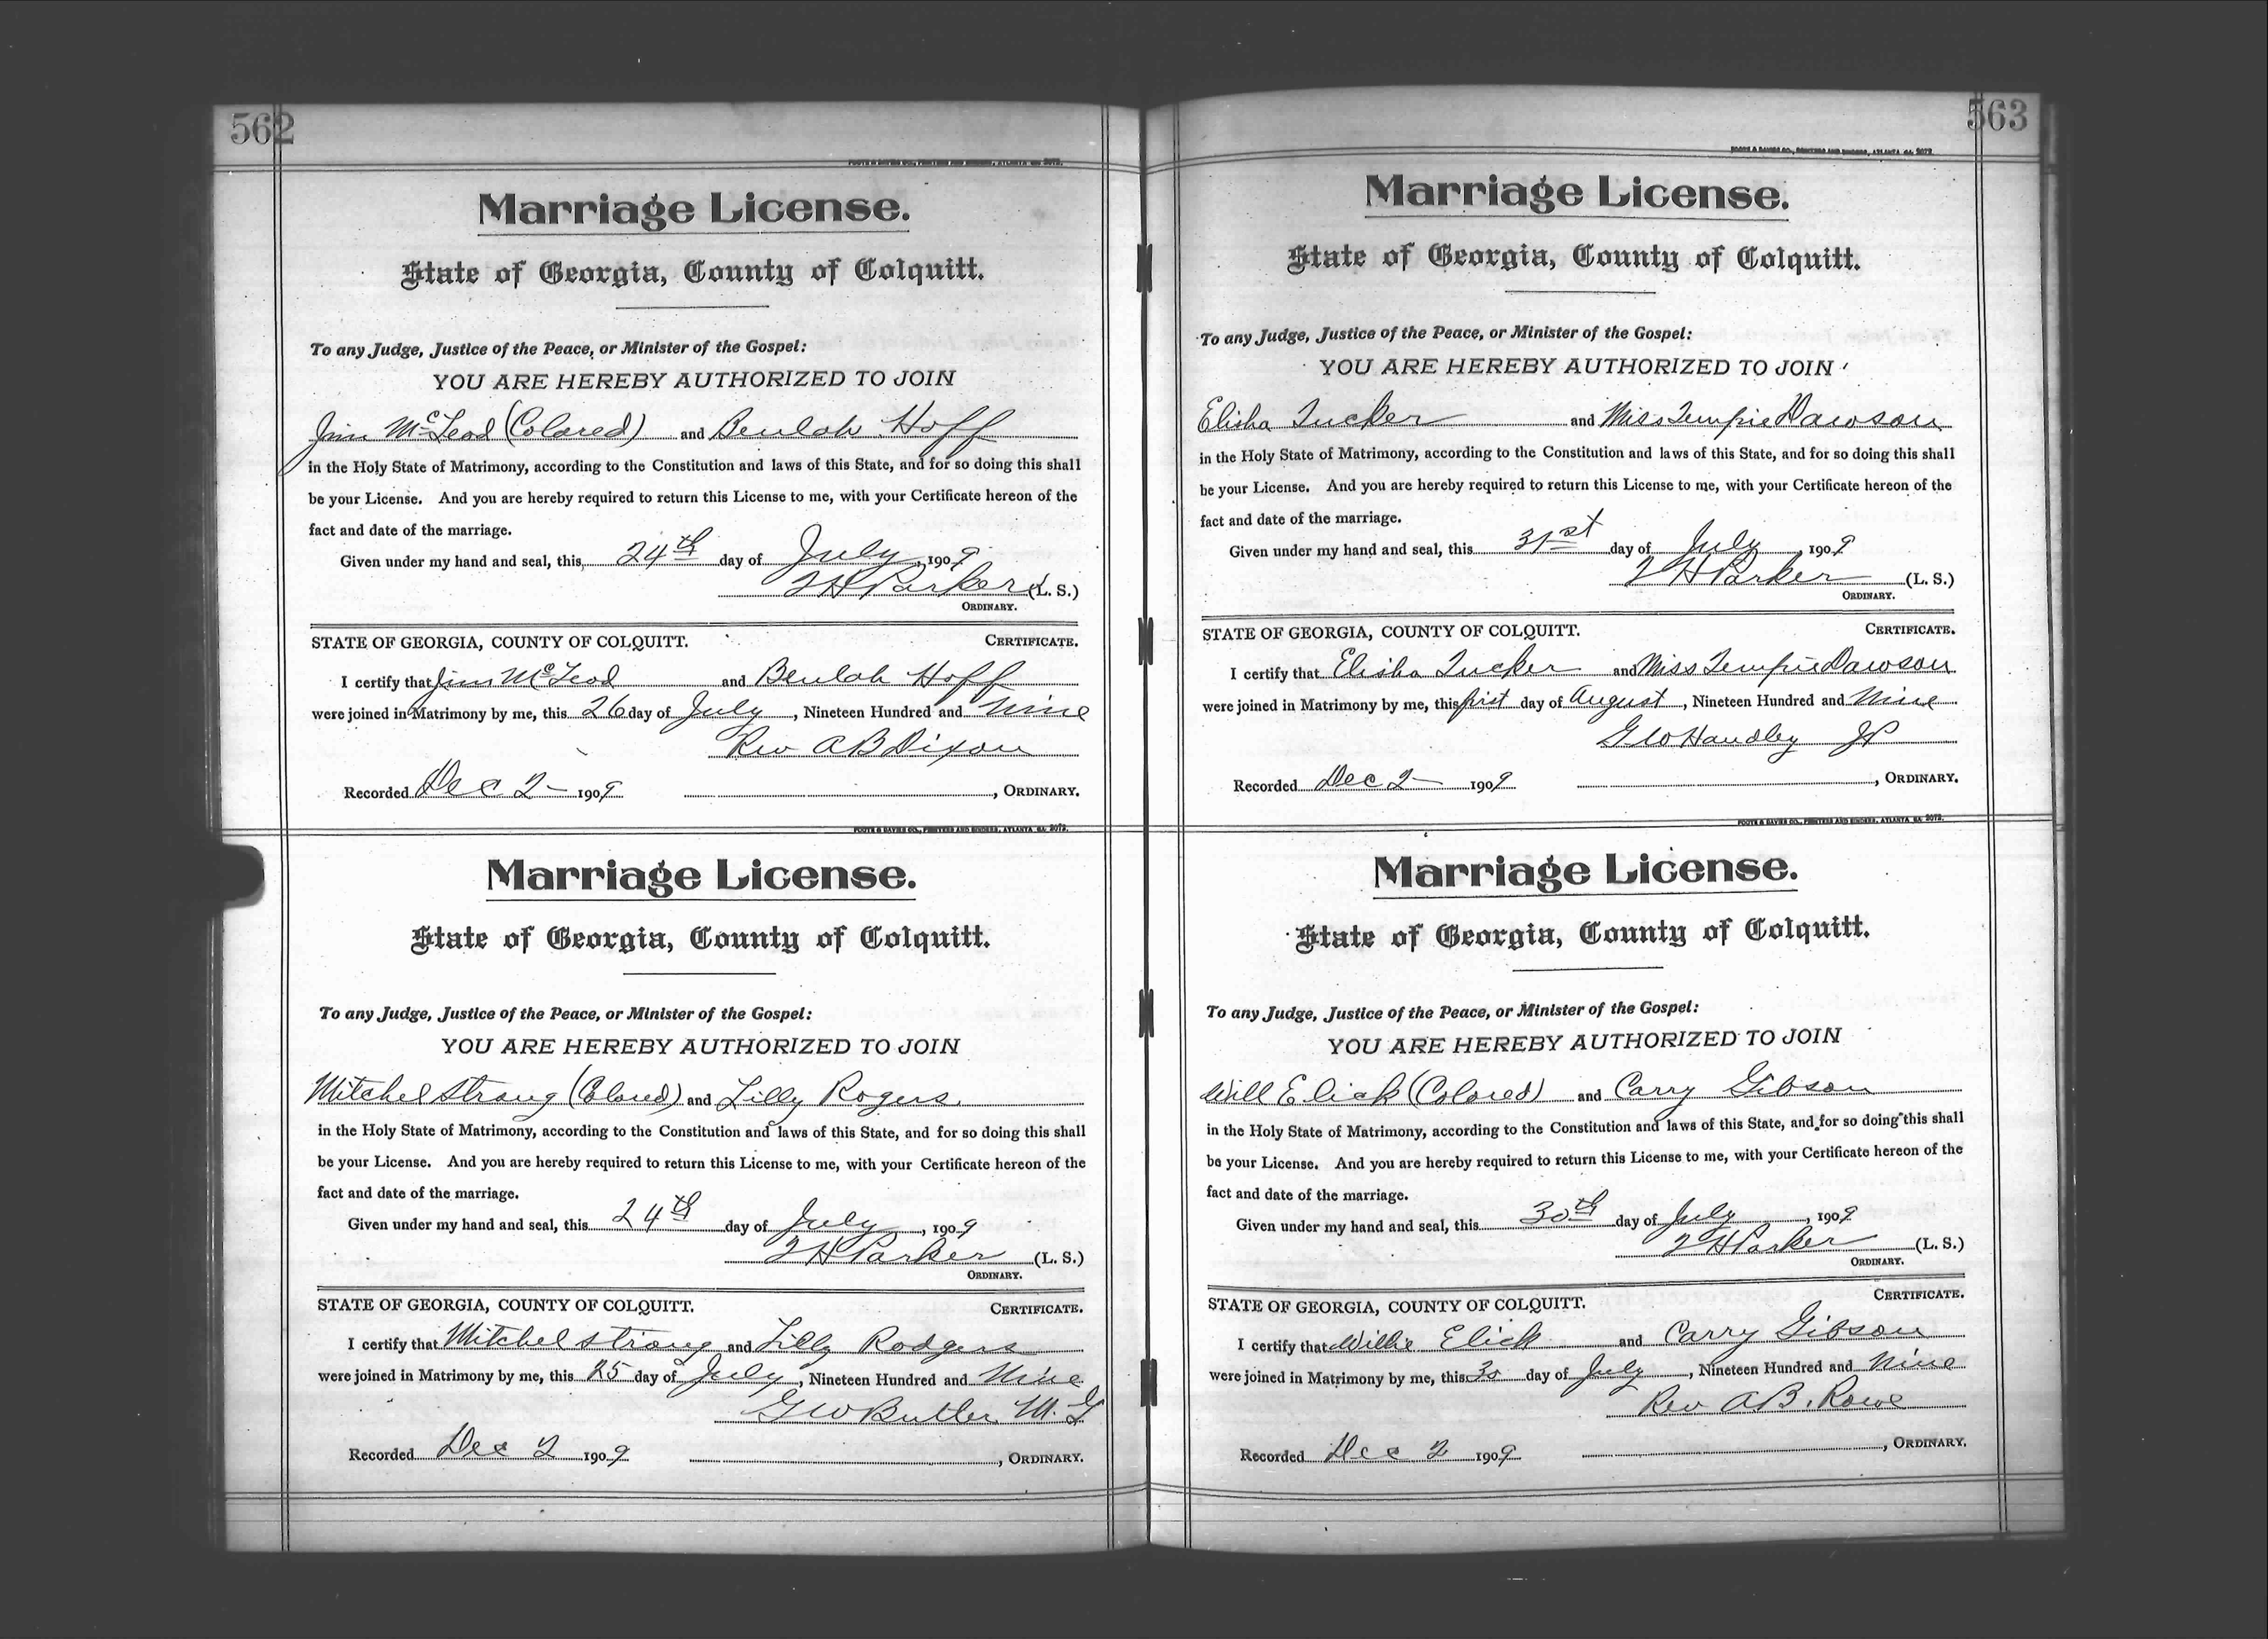 562
FOOTE & DAVIES CO., PRINTERS AND BINDERS, ATLANTA GA. 2072.
Marriage License.
State of Georgia, County of Colquitt.
To any Judge, Justice of the Peace, or Minister of the Gospel:
YOU ARE HEREBY AUTHORIZED TO JOIN
Jim McLeod (Colored) and Beulah Hoff
in the Holy State of Matrimony, according to the Constitution and laws of this State, and for so doing this shall
be your License. And you are hereby required to return this License to me, with your Certificate hereon of the
fact and date of the marriage.
Given under my hand and seal, this 24th day of July, 1909
Parker (L. S.)
ORDINARY.
STATE OF GEORGIA, COUNTY OF COLQUITT. CERTIFICATE.
I certify that Jim McLeod and Beulah Hoff
were joined in Matrimony by me, this 26 day of July, Nineteen Hundred and Nine
Rev A B Dixon
Recorded Dec 2 - 1909 , ORDINARY.
FOOTE & DAVIES CO., PRINTERS AND BINDERS, ATLANTA GA. 2072.
Marriage License.
State of Georgia, County of Colquitt.
To any Judge, Justice of the Peace, or Minister of the Gospel:
YOU ARE HEREBY AUTHORIZED TO JOIN
Mitchel Strong (Colored) and Lilly Rogers
in the Holy State of Matrimony, according to the Constitution and laws of this State, and for so doing this shall
be your License. And you are hereby required to return this License to me, with your Certificate hereon of the
fact and date of the marriage.
Given under my hand and seal, this 24th day of July, 1909
Parker (L. S.)
ORDINARY.
STATE OF GEORGIA, COUNTY OF COLQUITT. CERTIFICATE.
I certify that Mitchel Strong and Lilly Rodgers
were joined in Matrimony by me, this 25 day of July, Nineteen Hundred and Nine
G W Butler M. G
Recorded Dec 2 1909 , ORDINARY.
563
FOOTE & DAVIES CO., PRINTERS AND BINDERS, ATLANTA GA. 2072.
Marriage License.
State of Georgia, County of Colquitt.
To any Judge, Justice of the Peace, or Minister of the Gospel:
YOU ARE HEREBY AUTHORIZED TO JOIN
Elisha Tucker and Miss Tempie Dawson
in the Holy State of Matrimony, according to the Constitution and laws of this State, and for so doing this shall
be your License. And you are hereby required to return this License to me, with your Certificate hereon of the
fact and date of the marriage.
Given under my hand and seal, this 31st day of July, 1909
Parker (L. S.)
ORDINARY.
STATE OF GEORGIA, COUNTY OF COLQUITT. CERTIFICATE.
I certify that Elisha Tucker and Miss Tempie Dawson
were joined in Matrimony by me, this first day of August, Nineteen Hundred and Nine
Handley JP
Recorded Dec 2 - 1909 , ORDINARY.
FOOTE & DAVIES CO., PRINTERS AND BINDERS, ATLANTA GA. 2072.
Marriage License.
State of Georgia, County of Colquitt.
To any Judge, Justice of the Peace, or Minister of the Gospel:
YOU ARE HEREBY AUTHORIZED TO JOIN
Will Elick (Colored) and Carry Gibson
in the Holy State of Matrimony, according to the Constitution and laws of this State, and for so doing this shall
be your License. And you are hereby required to return this License to me, with your Certificate hereon of the
fact and date of the marriage.
Given under my hand and seal, this 30th day of July, 1909
Parker (L. S.)
ORDINARY.
STATE OF GEORGIA, COUNTY OF COLQUITT. CERTIFICATE.
I certify that Willie Elick and Carry Gibson
were joined in Matrimony by me, this 30 day of July, Nineteen Hundred and Nine
Rev A B. Rowe
Recorded Dec 2 1909 , ORDINARY.